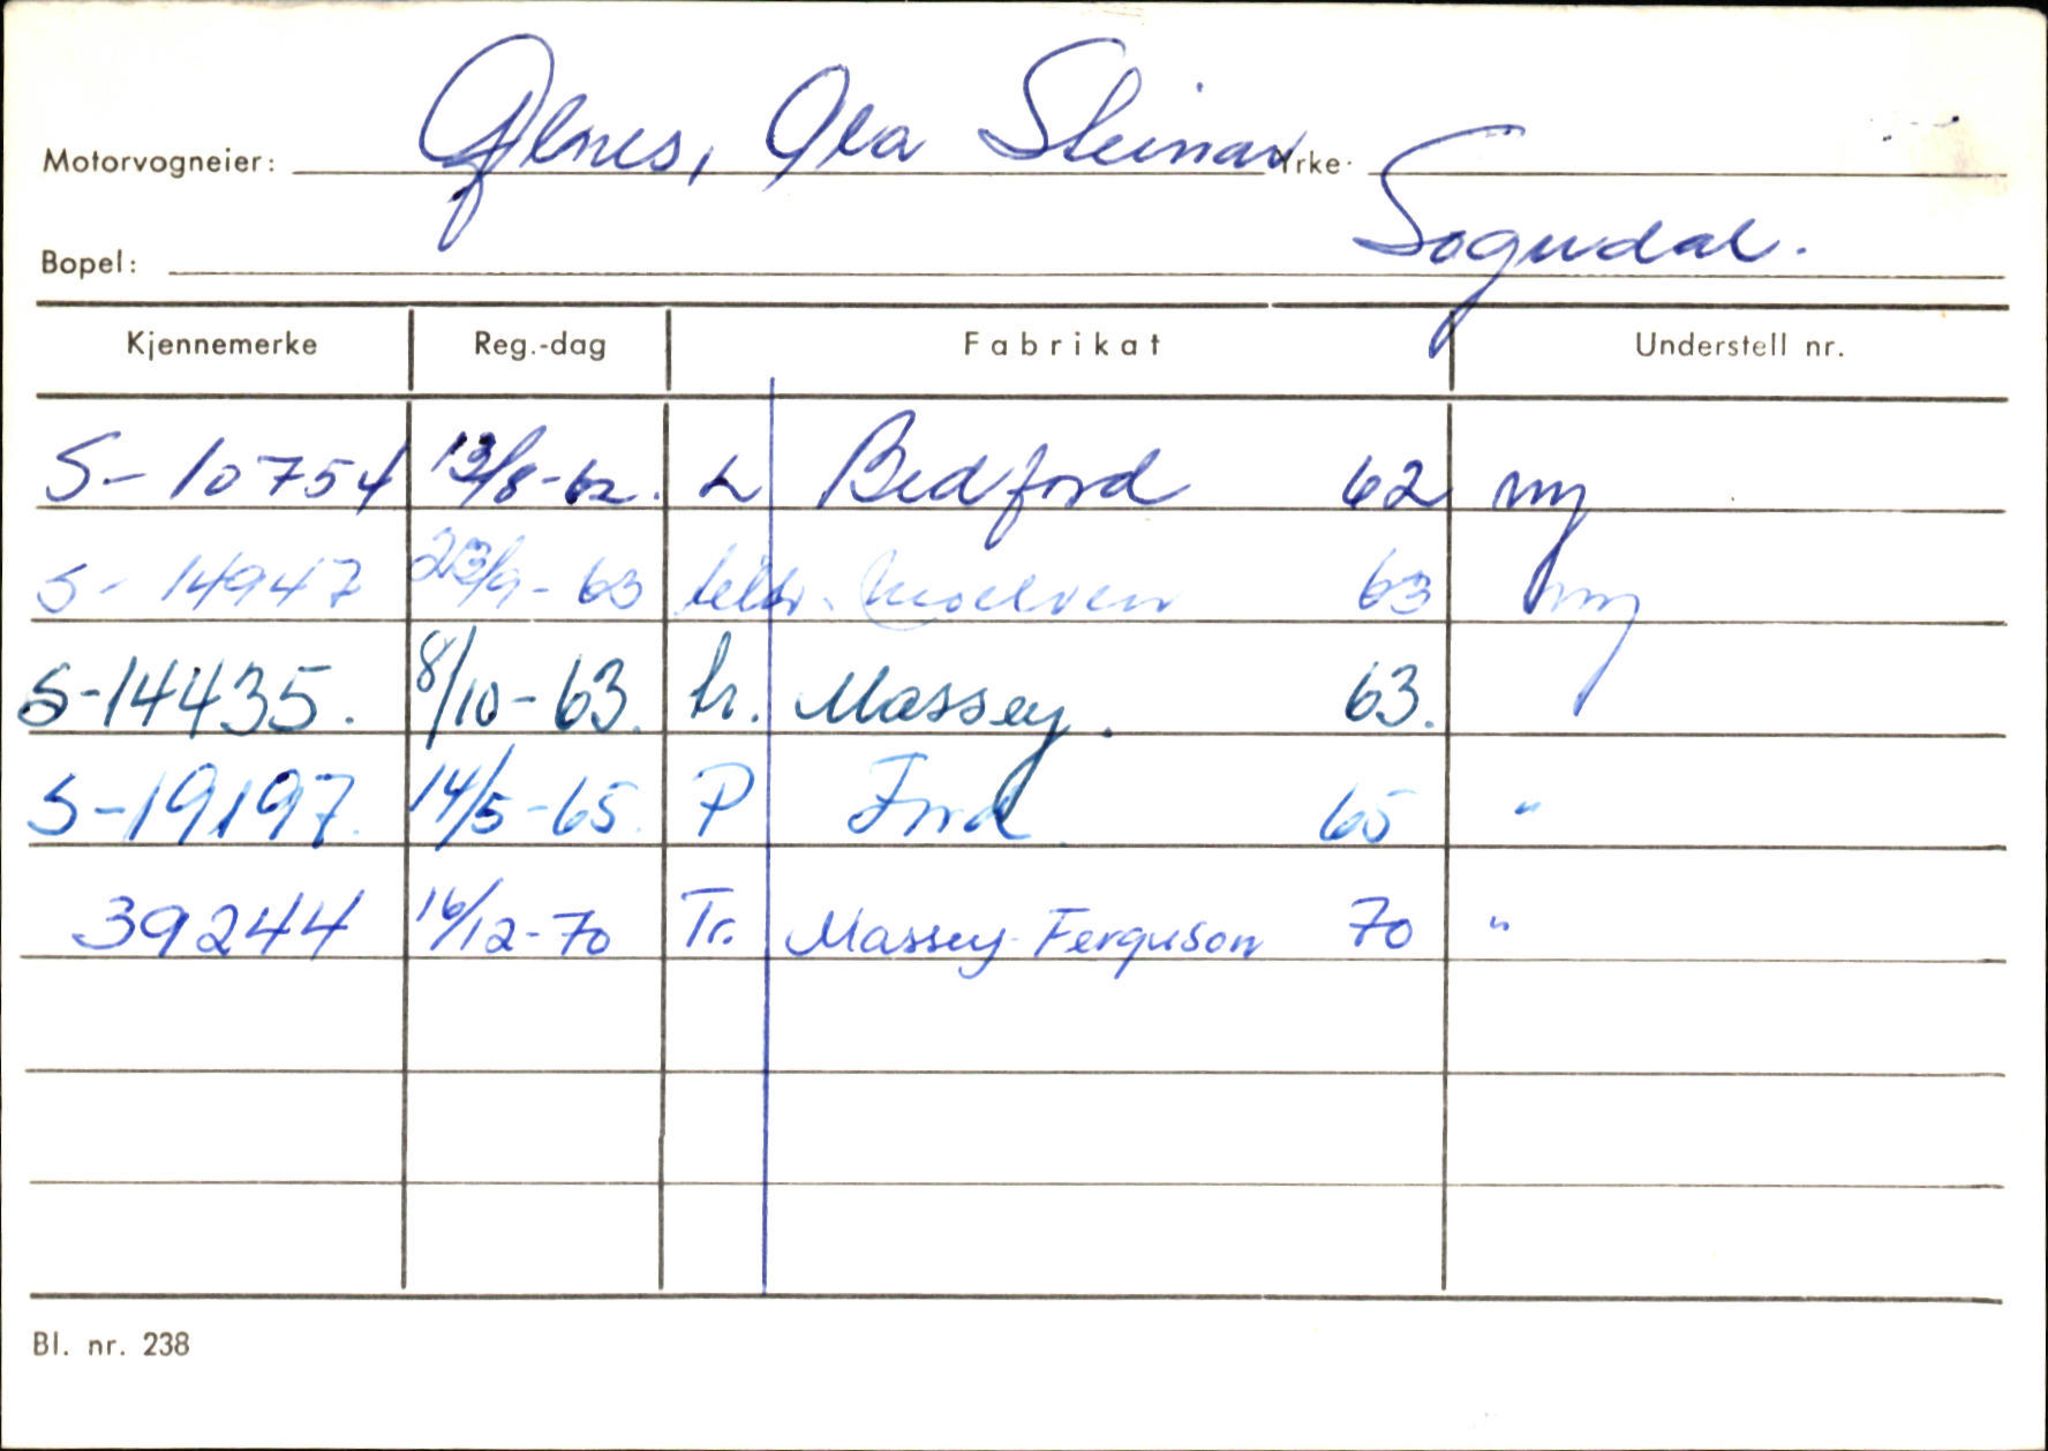 Motorvogneier: Gjelsnes, Ola Steinar Yrke:
Bopel: Sogndal.
Kjennemerke Reg.-dag Fabrikat Understell nr.
S-10754 13/8-62. L Bedford 62 ny
S-14947 23/9-63 Moelven 63 ny
S-14435. 8/10-63. tr. Massey. 63.
S-19197. 14/5-65. P Ford 65 "
39244 16/12-70 Tr. Massey-Ferguson 70 "
Bl. nr. 238